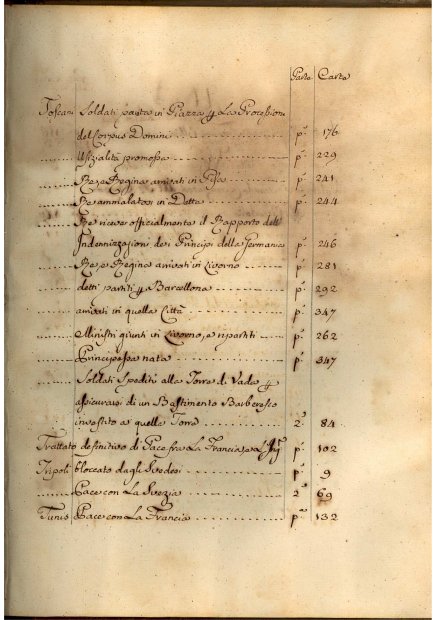 Parte Carta
Toscani Soldati parata in Piazza p La Procession
del Corpus Domini p.ª 176
Ufizialità promossa p.ª 229
Re, e Regina arrivati in Pisa p.ª 241
Re ammalatosi in Detta p.ª 244
Re riceve officialmente il Rapporto dell'
Indennizzazioni dei Principi della Germania p.ª 246
Re, e Regina arrivati in Livorno p.ª 281
detti partiti p Barcellona p.ª 292
arrivati in quella Città p.ª 347
Ministri giunti in Livorno, e ripartiti p.ª 262
Principessa nata p.ª 347
Soldati Spediti alla Torre di Vada p
assicurarsi di un Bastimento Barberesco
investito a quella Torre 2.ª 84
Trattato definitivo di Pace fra La Francia, e L'Ing p.ª 102
Tripoli bloccato dagli Svedesi p.ª 9
Pace con La Svezia 2 69
Tunis Pace con La Francia p.ª 132